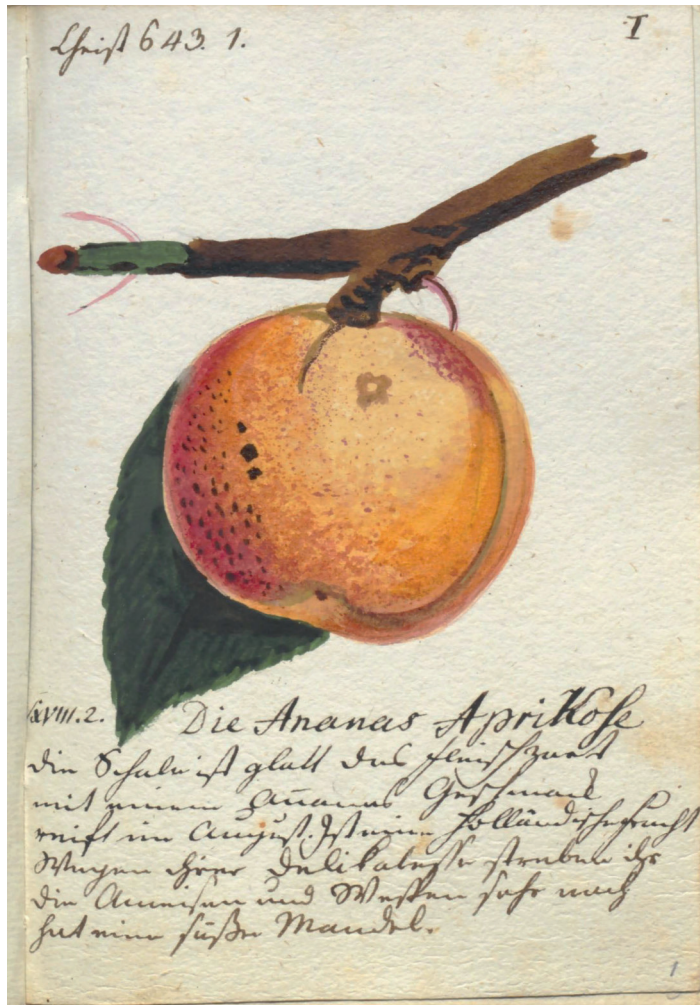 Christ 643. 1.
I
XVIII. 2.
Die Ananas Aprikose
die Schale ist glatt das Fleisch zart
mit einem Ananas Geschmak
reift im August. Ist eine Holländische Frucht
Wegen ihrer Delikatesse streben ihr
die Ameisen und Wespen sehr nach
hat eine süße Mandel.
1